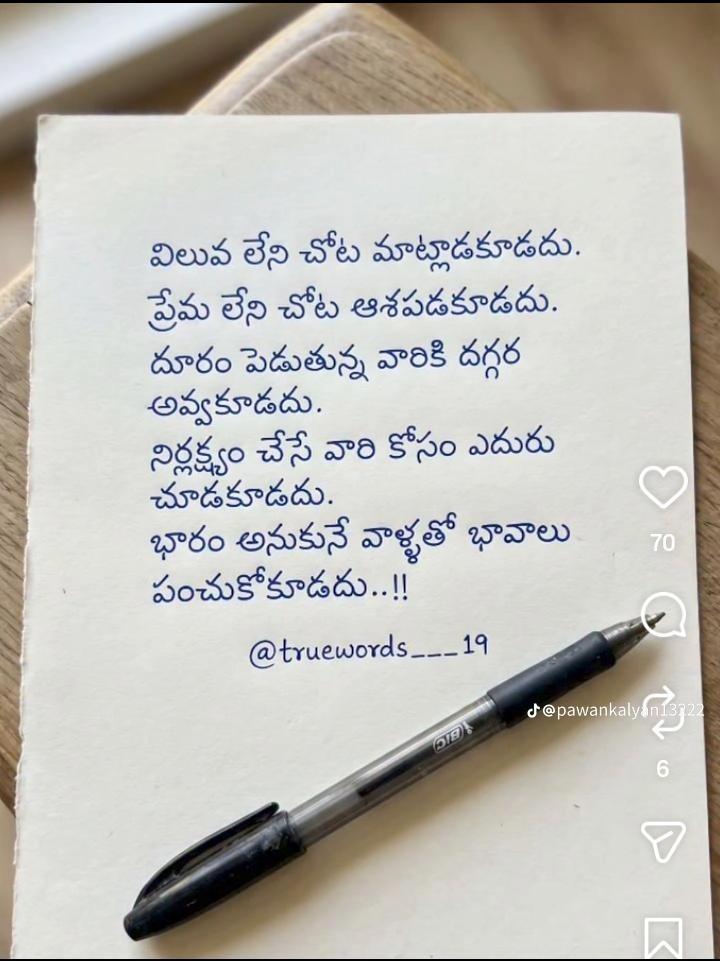 విలువ లేని చోట మాట్లాడకూడదు.
ప్రేమ లేని చోట ఆశపడకూడదు.
దూరం పెడుతున్న వారికి దగ్గర
అవ్వకూడదు.
నిర్లక్ష్యం చేసే వారి కోసం ఎదురు
చూడకూడదు.
భారం అనుకునే వాళ్ళతో భావాలు
పంచుకోకూడదు..!!
@truewords___19
@pawankalyan13222
BIC
70
6